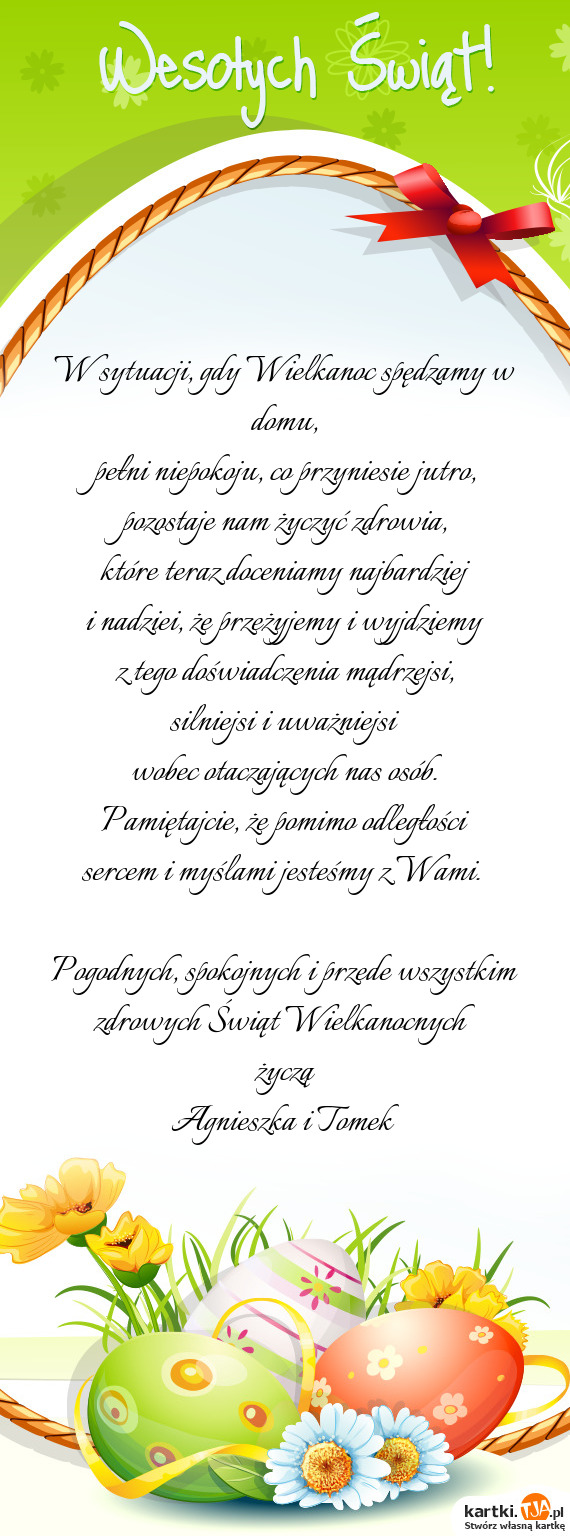 Wesołych Świąt!
W sytuacji, gdy Wielkanoc spędzamy w
domu,
pełni niepokoju, co przyniesie jutro,
pozostaje nam życzyć zdrowia,
które teraz doceniamy najbardziej
i nadziei, że przeżyjemy i wyjdziemy
z tego doświadczenia mądrzejsi,
silniejsi i uważniejsi
wobec otaczających nas osób.
Pamiętajcie, że pomimo odległości
sercem i myślami jesteśmy z Wami.
Pogodnych, spokojnych i przede wszystkim
zdrowych Świąt Wielkanocnych
życzą
Agnieszka i Tomek
kartki.TJA.pl
Stwórz własną kartkę